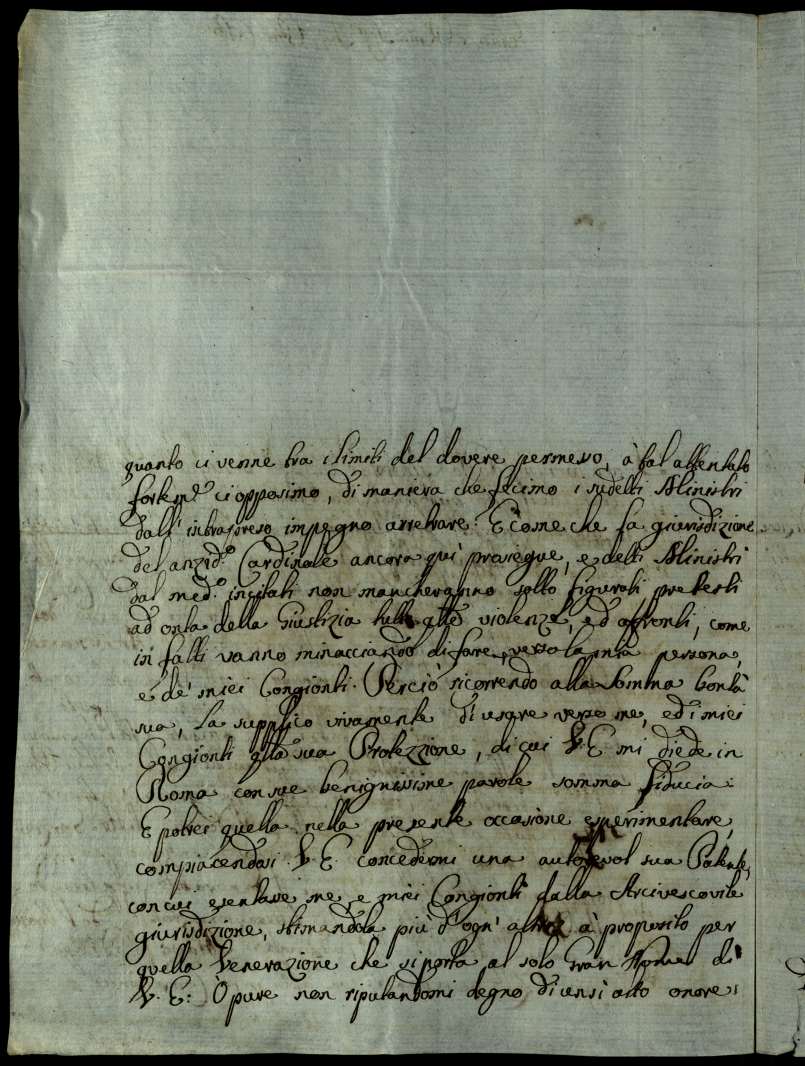 quanto ci venne tra i limiti del dovere permesso, à tal attentato
fortem.te ci opposimo, di maniera che fecimo i sudetti Ministri
dall' intrapreso impegno arretrare. E come che la giurisdizione
del anzid.o Cardinale ancora quì prosiegue, e detti Ministri
dal med.o incitati non mancheranno sotto figurati pretesti
ad onta della Giustizia tutte violenze, ed affronti, come
in fatti vanno minacciando di fare, verso la mia persona,
e de' miei Congionti. Perciò ricorrendo alla somma bontà
sua, La supplico vivamente di usare verso me, ed i miei
Congionti alta sua Protezzione, di cui V. E. mi diede in
Roma con sue benignissime parole somma fiducia.
E potrei quella nella presente occasione esperimentare,
compiacendosi V. E. concedermi una autorevol sua Patente,
con cui esentare me, e miei Congionti dalla Arcivescovile
giurisdizione, stimandola più d'ogn' altra à proposito per
quella Venerazione che si porta al solo Gran Nome di
V. E: Ò pure non riputandomi degno di un sì alto onore,